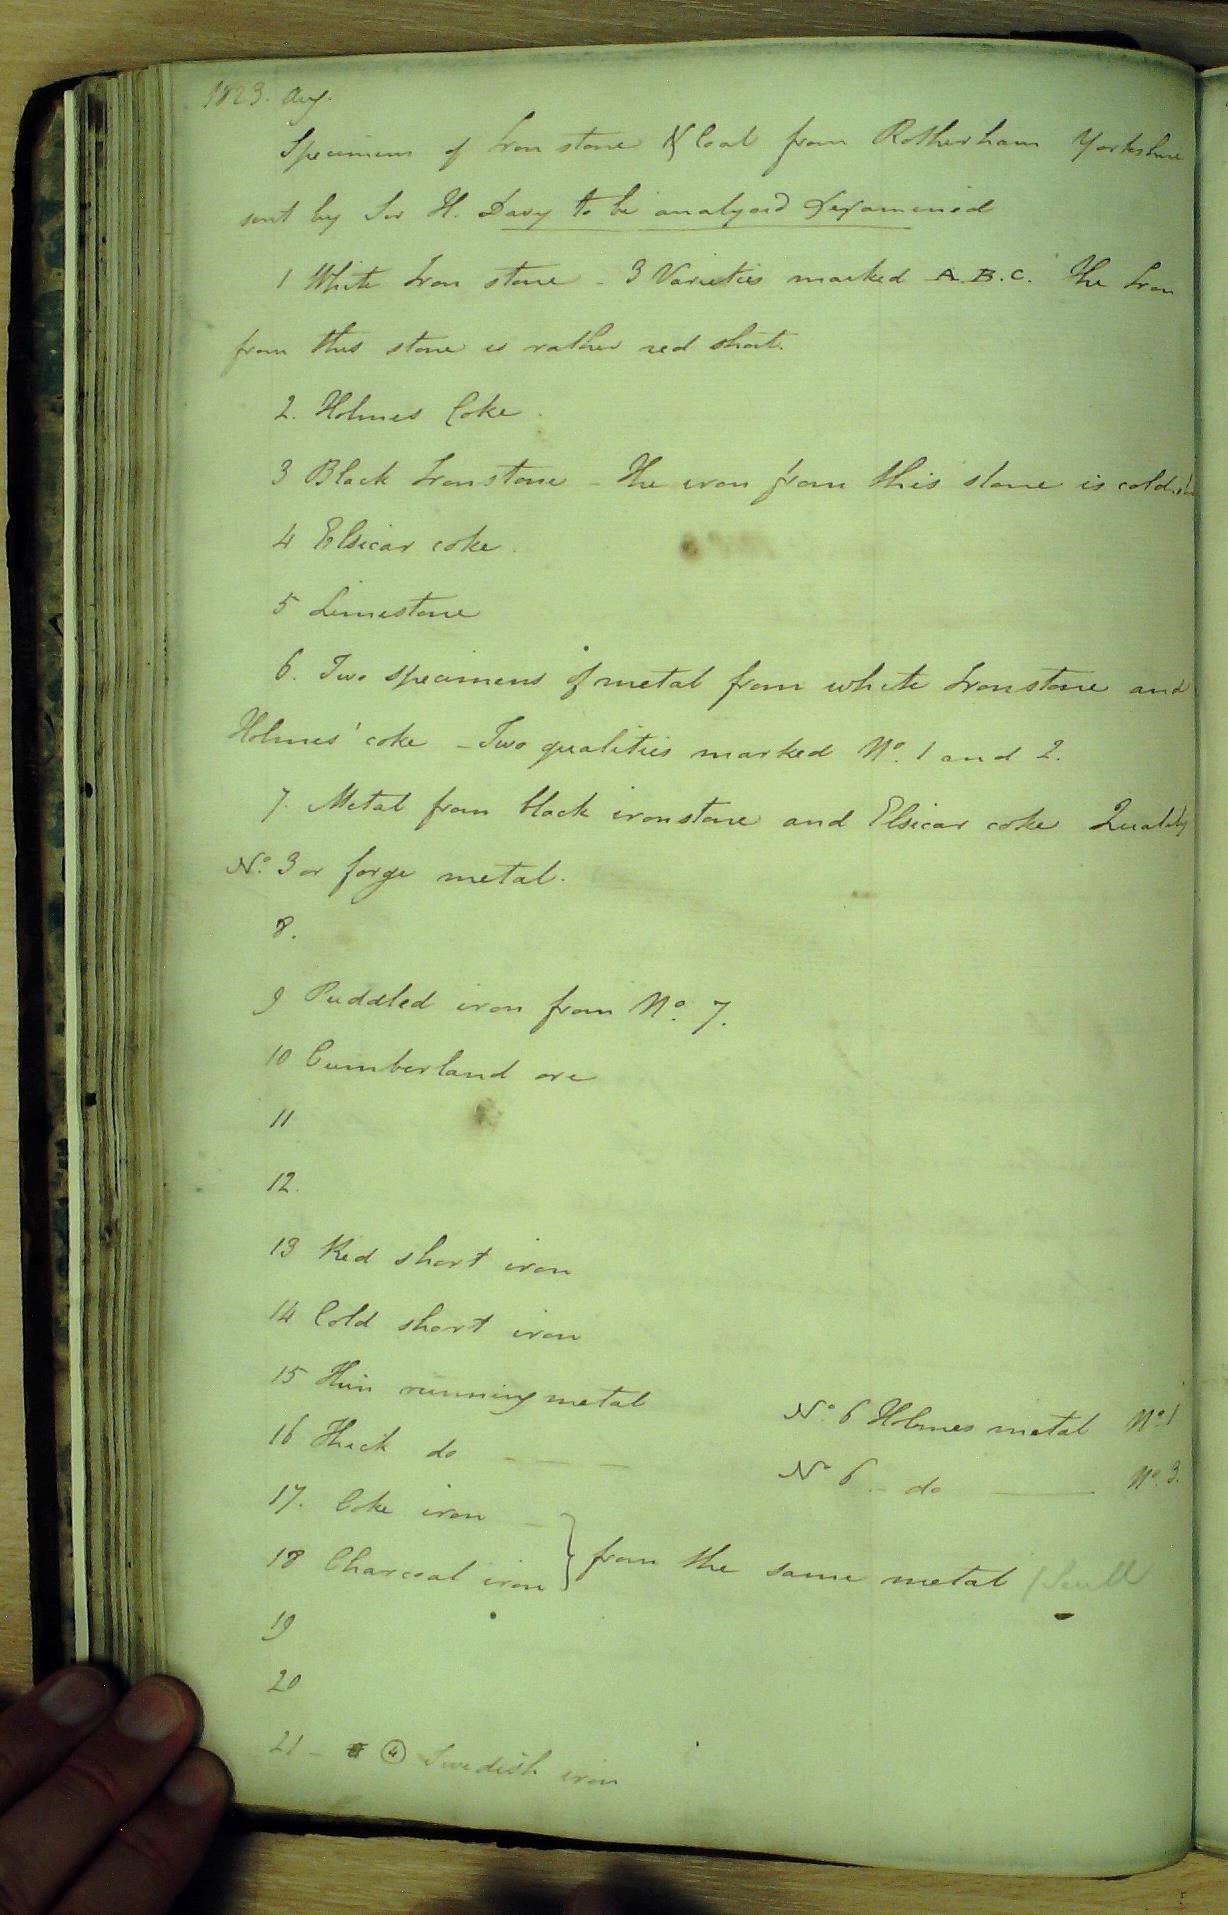 1823. Aug.
Specimens of Iron stone & Coal from Rotherham Yorkshire
sent by Sir H. Davy to be analyzed & examined
1 White Iron stone - 3 Varieties marked A. B. C. The Iron
from this stone is rather red short.
2. Holmes Coke.
3 Black Ironstone - The iron from this stone is cold
4 Elsicar coke.
5 Limestone
6. Two specimens of metal from white Ironstone and
Holmes' coke - Two qualities marked No. 1 and 2.
7. Metal from black ironstone and Elsicar coke Quality
No. 3 or forge metal.
8.
9 Puddled iron from No. 7.
10 Cumberland ore
11
12.
13 Red short iron
14 Cold short iron
15 Thin running metal No. 6 Holmes metal No. 1
16 Thick do - - - No 6 - do — No. 3.
17. Coke iron -
18 Charcoal iron } from the same metal
19
20
21 - 4 Swedish iron